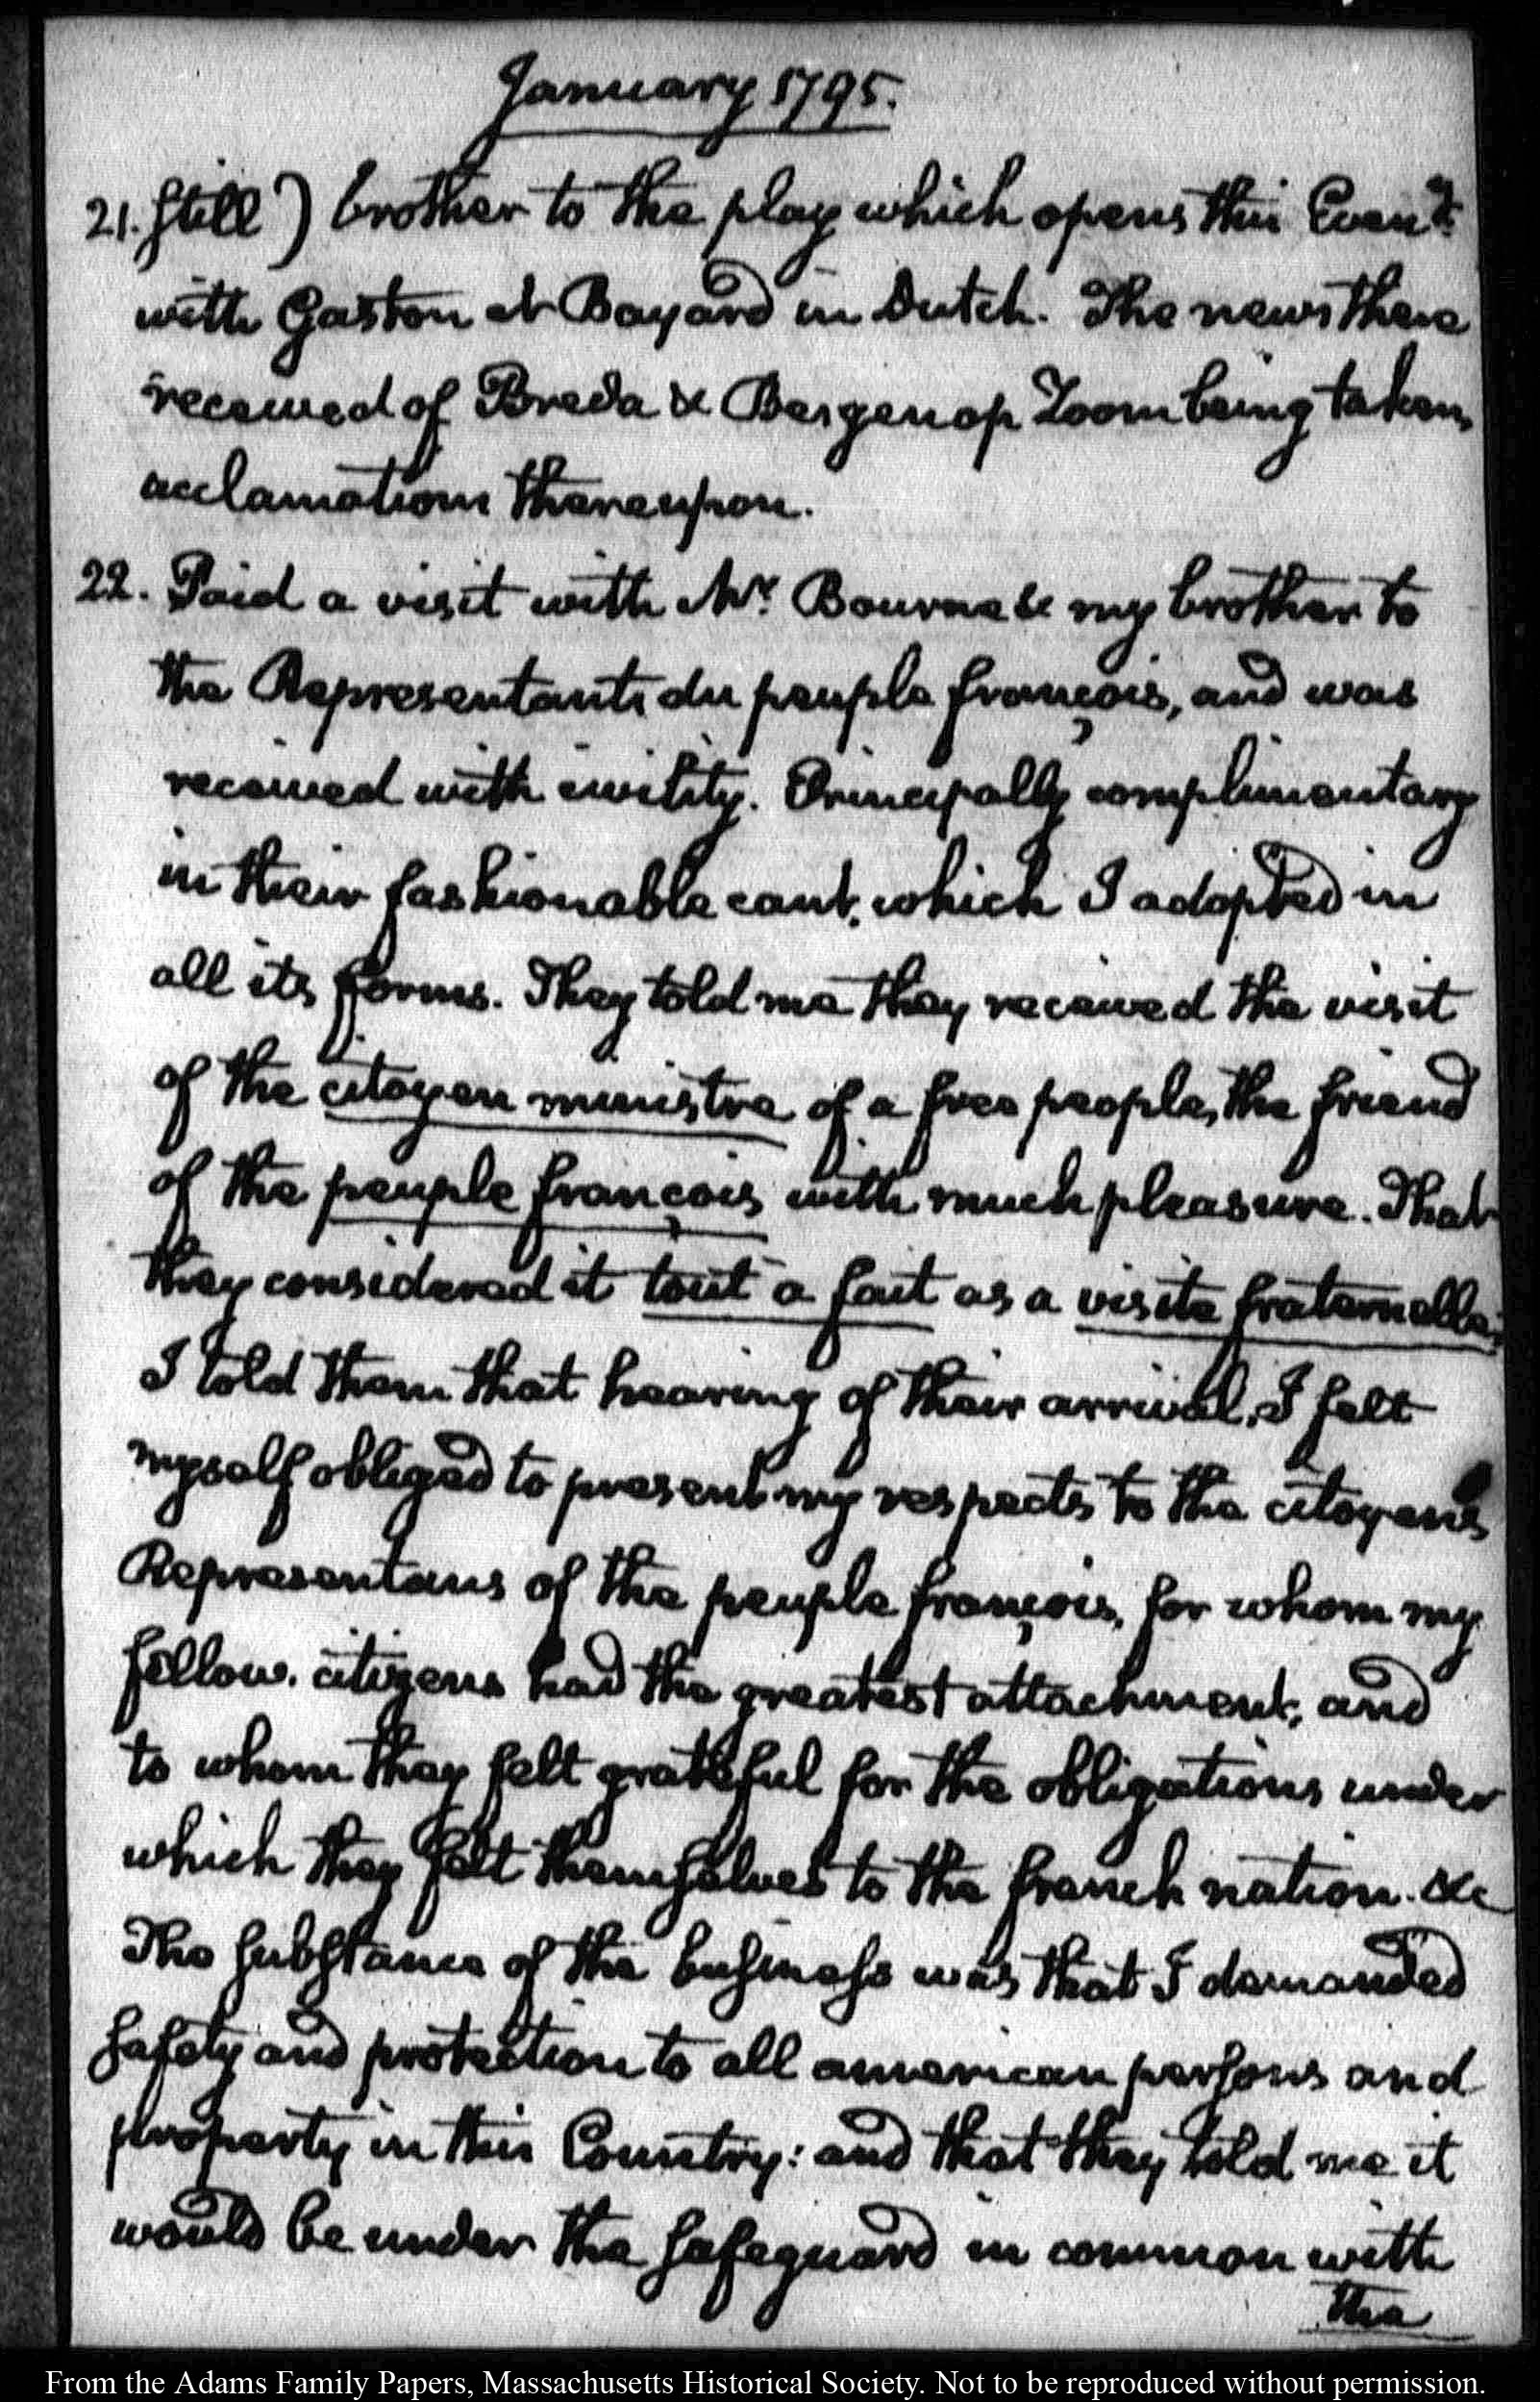 January 1795.
21. still) brother to the play which opens this Eveng.
with Gaston et Bayard in Dutch. The news there
received of Breda & Bergenop Zoom being taken,
acclamations thereupon.
22. Paid a visit with Mr. Bourne & my brother to
the Representants du peuple françois, and was
received with civility. Principally complimentary
in their fashionable cant, which I adopted in
all its forms. They told me they received the visit
of the citoyen ministre of a free people, the friend
of the peuple françois with much pleasure. That
they considered it tout à fait as a visite fraternelle;
I told them that hearing of their arrival, I felt
myself obliged to present my respects to the citoyens
Representans of the peuple françois, for whom my
fellow-citizens had the greatest attachment, and
to whom they felt grateful for the obligations under
which they felt themselves to the french nation. &c
The substance of the business was that I demanded
safety and protection to all american persons and
property in this Country: and that they told me it
would be under the safeguard in common with
the
From the Adams Family Papers, Massachusetts Historical Society. Not to be reproduced without permission.